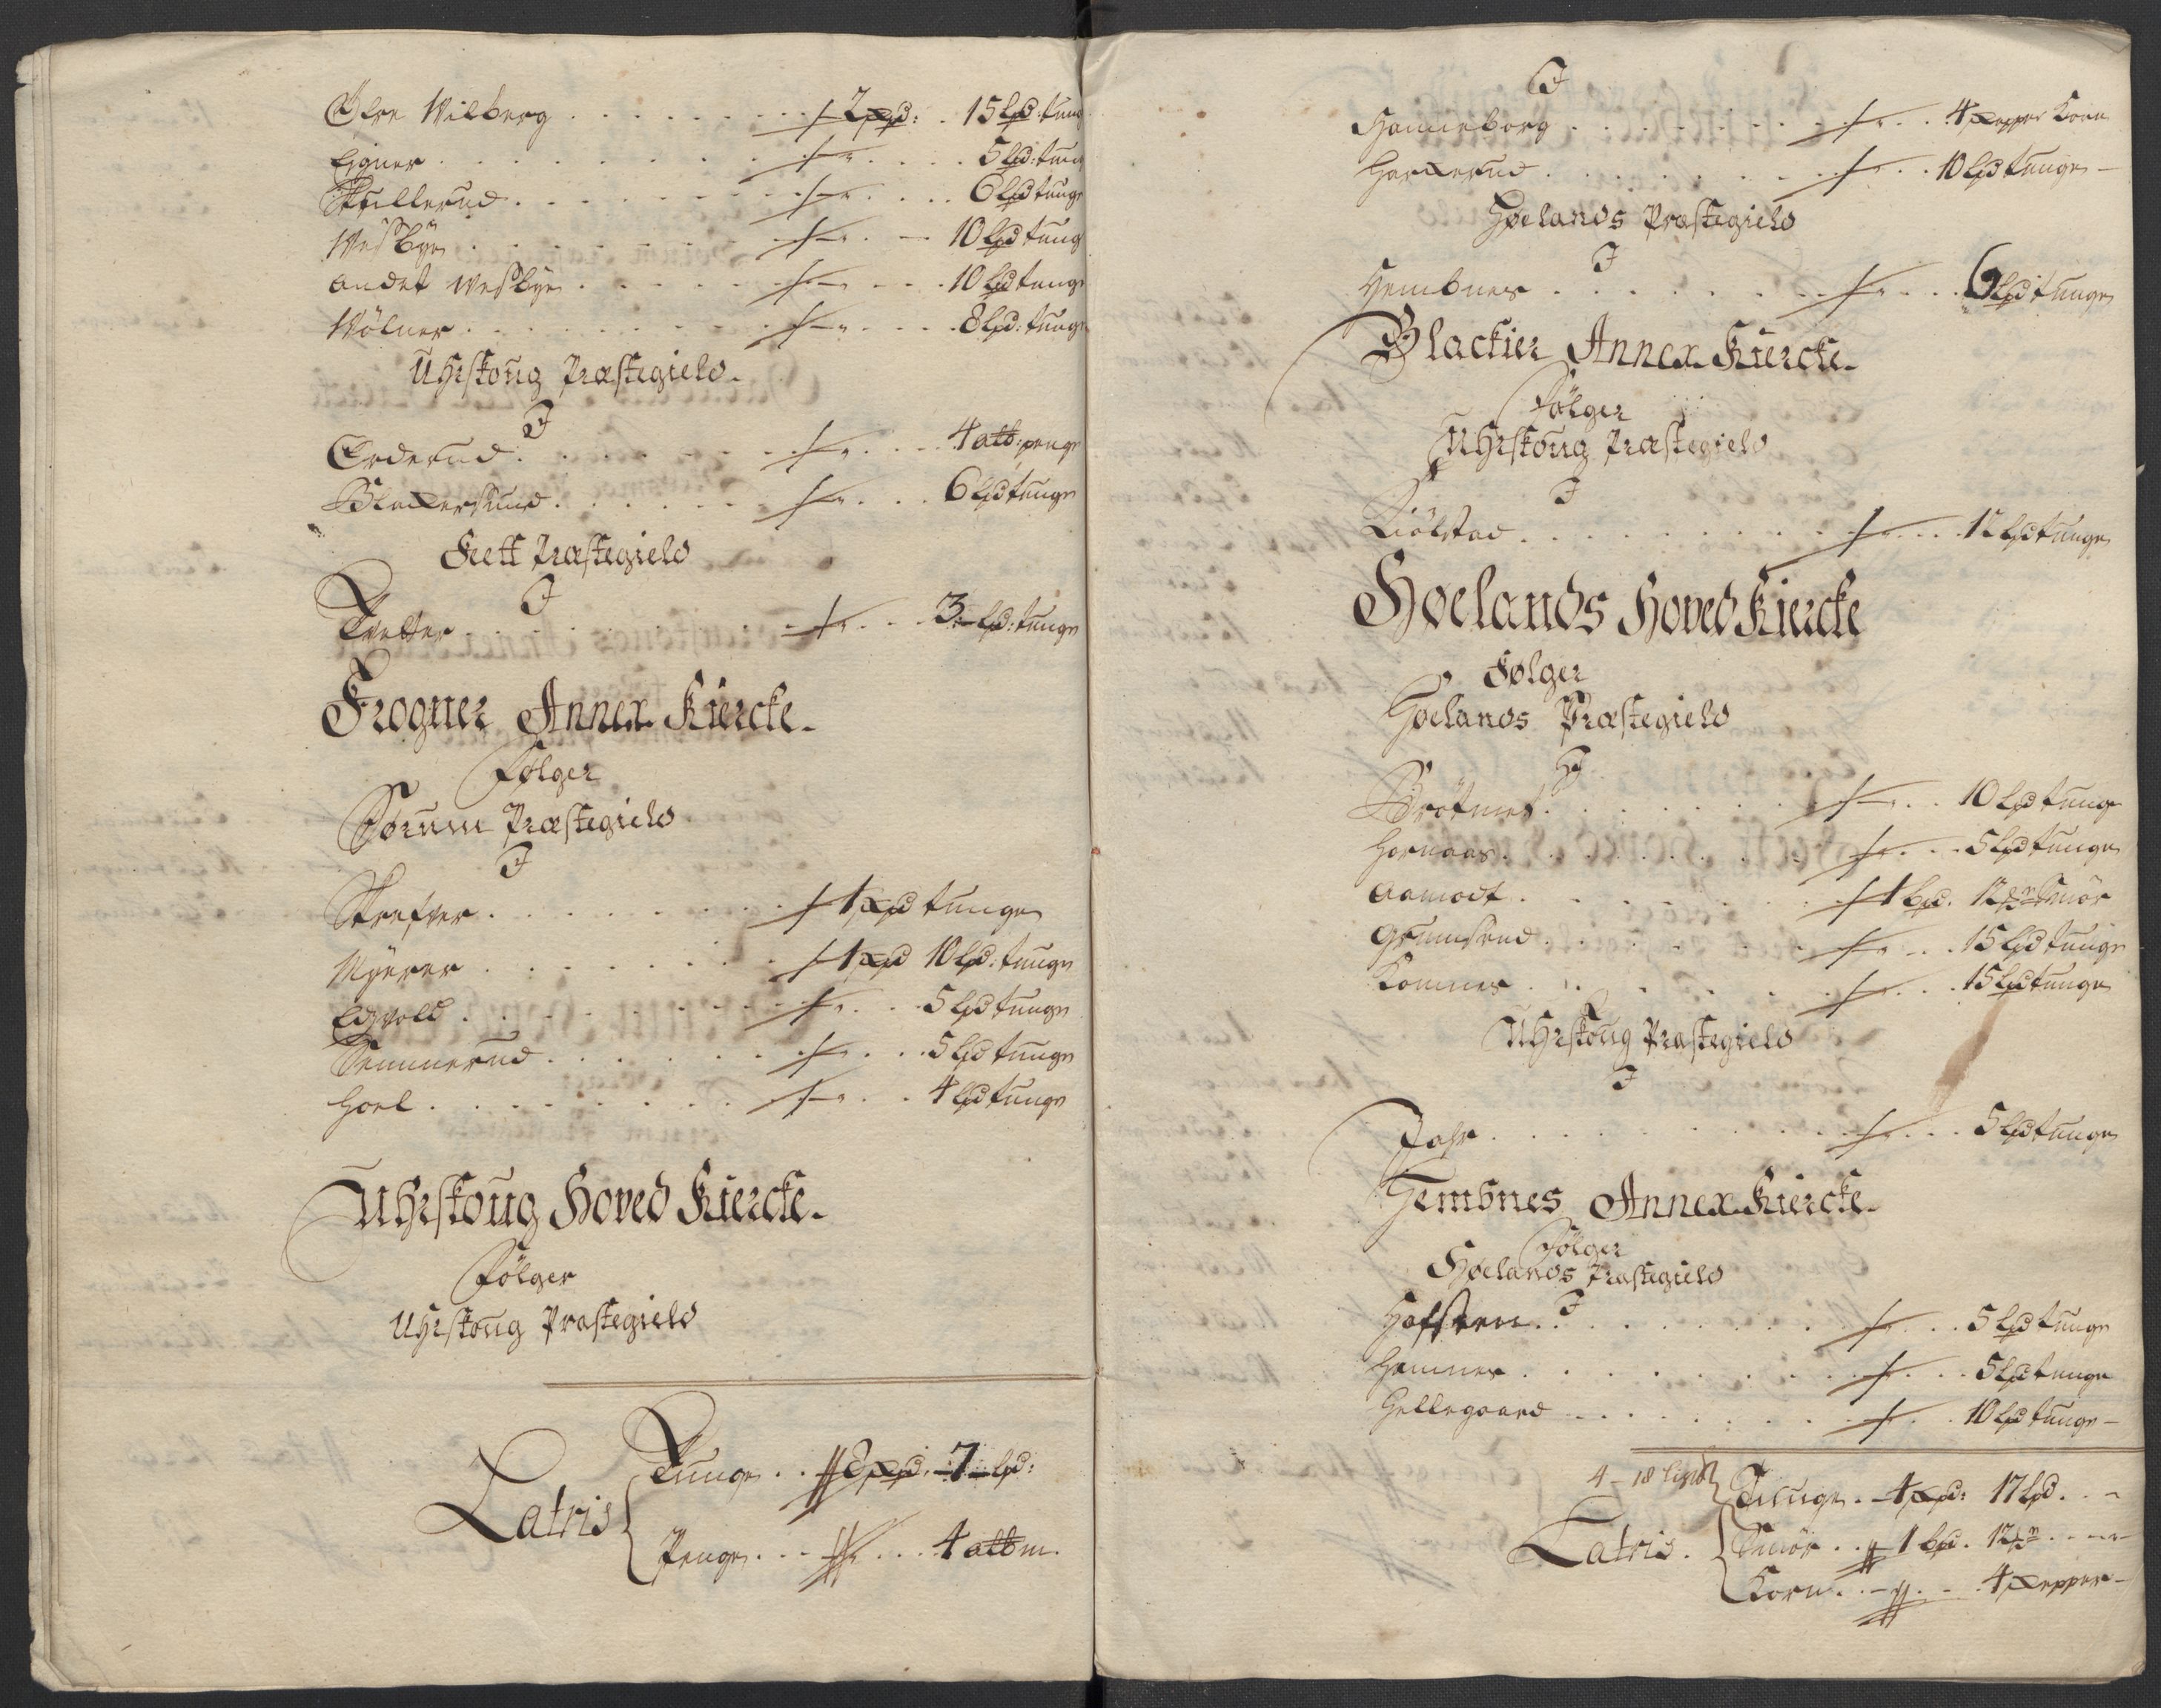 Øfre Wilberg . . . . . . . . 2 xpd: . 15 lpd: tung
Eigner . . . . . . . . 5 lpd: tung
Skullerud . . . . . . . . 6 lpd tunge
Wesbye . . . . . . . . 10 lpd tung
andet Wesbye . . . . . . . 10 lpd tunge
Mölner . . . . . . . . 8 lpd: tunge
Uhrskoug Præstegield.
J
Erderud . . . . . . . . 4 alb: penge
Blakersund . . . . . . . 6 lpd tunge
Feett Præstegield
J
Tvetter . . . . . . . . 3 lpd: tunge
Frogner Annex Kiercke.
Følger
Sørum Præstegield
J
Refver . . . . . . . 1 xpd tunge
Myerer . . . . . . . 1 xpd 10 lpd: tunge
Egvold . . . . . . . . 5 lpd tunge
Rennerud . . . . . . . 5 lpd tunge
Hoel . . . . . . . . 4 lpd tunge
Uhrskoug Hoved Kiercke.
Følger
Uhrskoug Præstegield
Tunge . . 8 xpd. 7 lpd:
Latris
Penge . . . . . 4 albm.
J
Hanneborg . . . . . . . 4 xepper Korn
Harkerud . . . . . . . 10 lpd tunge
Høelands Præstegield
J
Hembnes . . . . . . . . 6 lpd tunge
Blackier Annex Kiercke.
Følger
Uhrskoug Præstegield
J
Kiölstad . . . . . . . . 15 lpd tunge
Høelands Hoved Kiercke
Følger
Høelands Præstegield
J
Brötnes . . . . . . . . 10 lpd tunge
Hornaas . . . . . . . . 5 lpd tunge
Aamodt . . . . . . . 1 bpd. 12 Smör
Grimsrud . . . . . . . 15 lpd tunge
Komnes . . . . . . . . 15 lpd tunge
Uhrskoug Præstegield
J
Jahr . . . . . . . . 5 lpd tunge
Hembnes Annex Kiercke.
Følger
Høelands Præstegield
J
Hafsteen . . . . . . . . 5 lpd tunge
Hamner . . . . . . . . 5 lpd tunge
Hellegaard . . . . . . . 10 lpd tunge
4 - 18 lispd
Tunge . 4 xpd: 17 lpd.
Latris. Smör . . 1 bpd. 12
Korn . . . 4 xepper